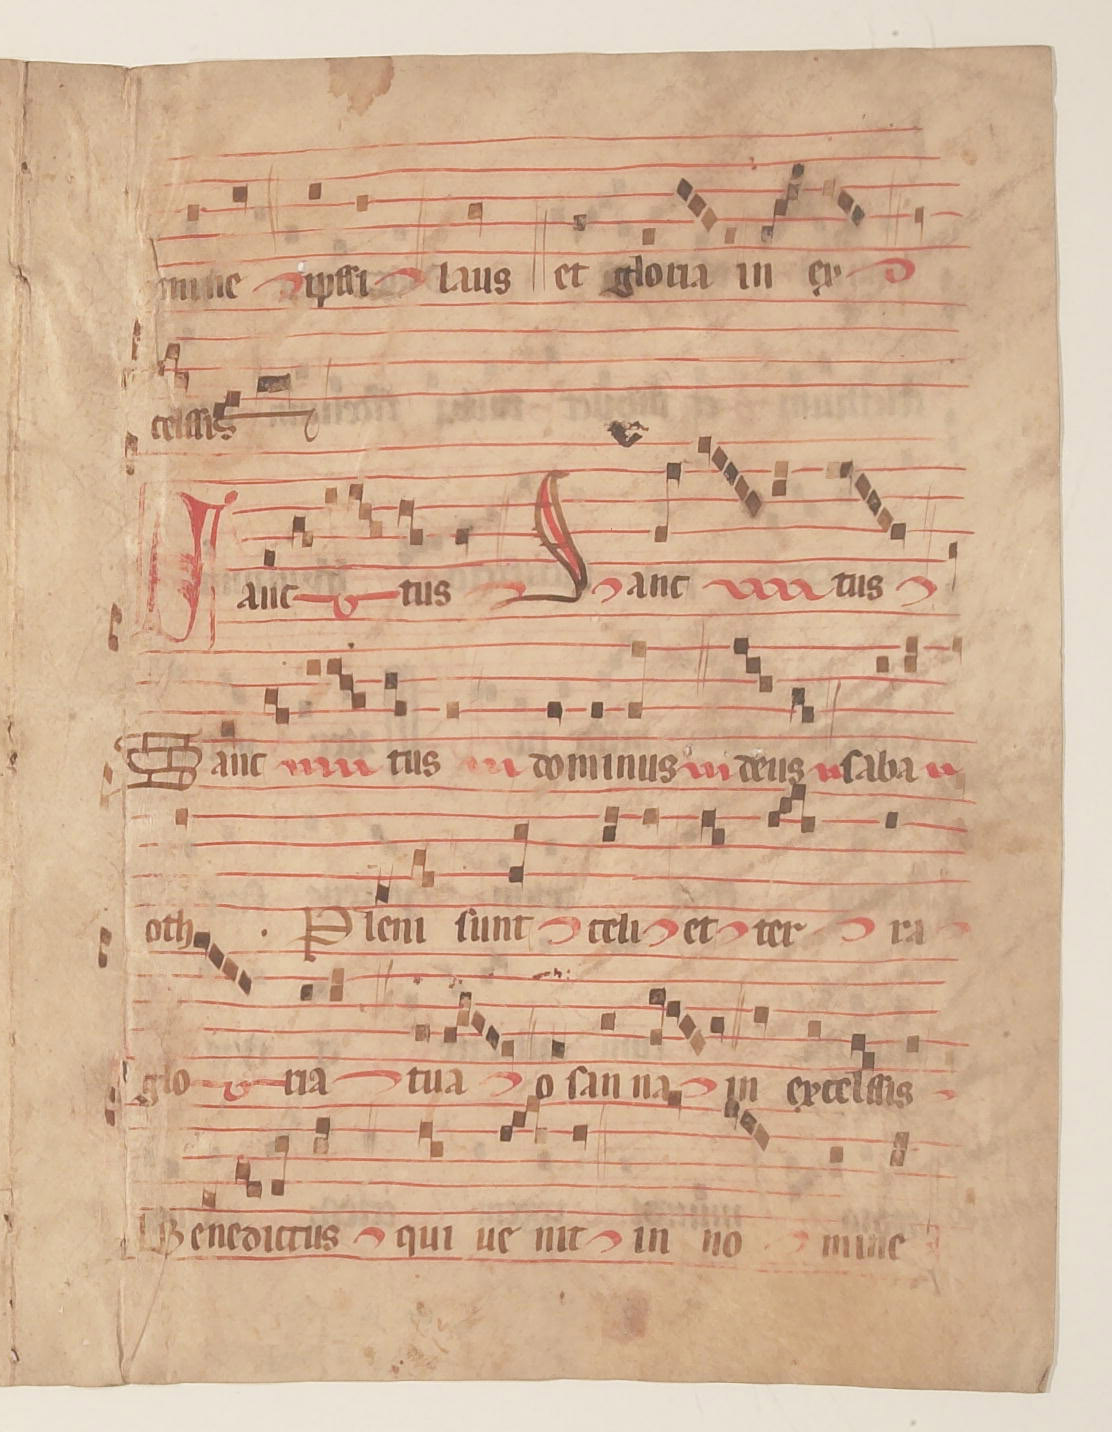 mine ipssi laus et gloria in ex
celssis
Sanc tus Sanc tus
Sanc tus dominus deus saba
oth. Pleni sunt celi et ter ra
glo ria tua o san na in excelssis
Benedictus qui ue nit in no mine